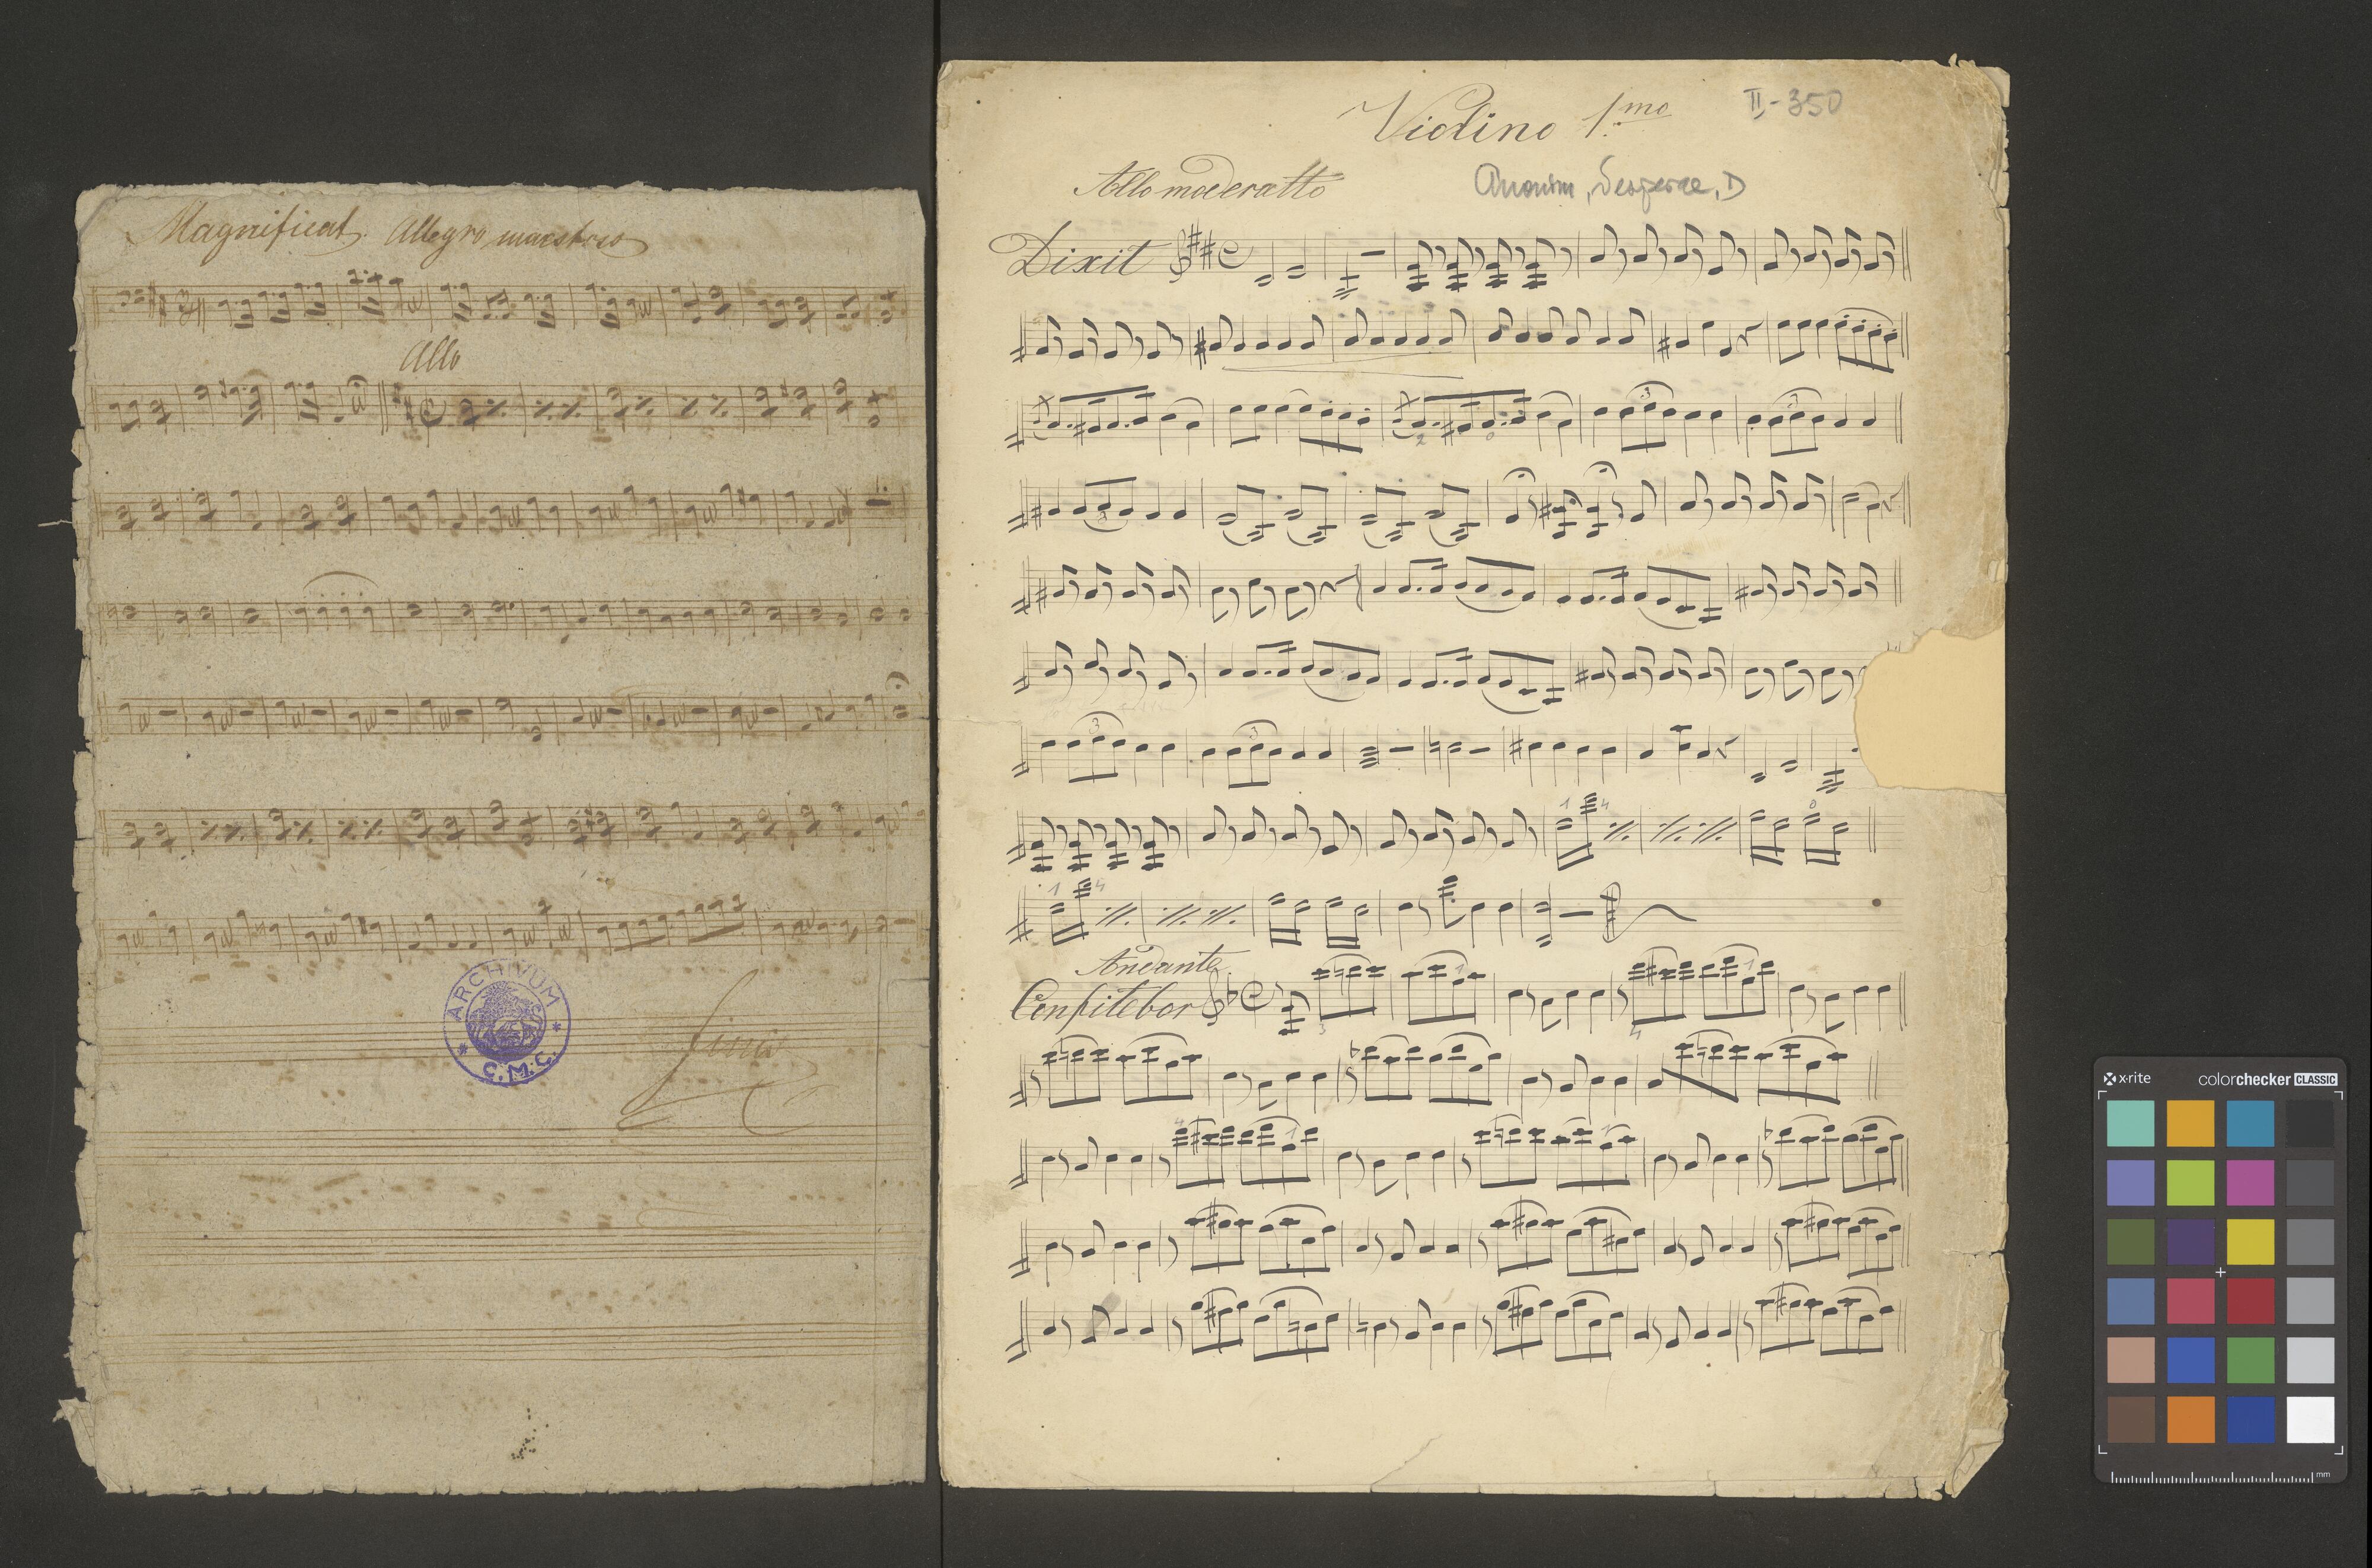 Magnificat. Allegro maestoso
Allo
ARCHIVUM
* C.M.C. *
Finis
Violino 1.mo
II-350
Allo moderatto
Anonim, Vesperae, D
Dixit
Andante
Confitebor
x-rite
colorchecker CLASSIC
mm